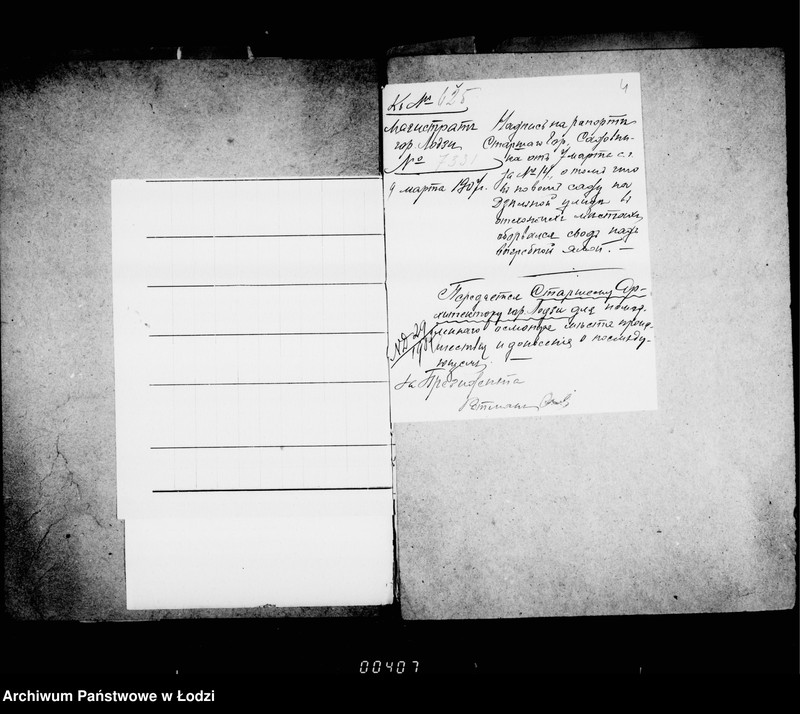 4
Къ № 625
Магистратъ
гор. Лодзи
№ 7331
9 марта 1907 г.
Надпись на рапортѣ
Старшаго Гор. Садовни-
ка отъ 7 марта с. г.
за № 14, о томъ что
въ новомъ саду по
Дзѣльной улицѣ въ
отхожихъ мѣстахъ
оборвался сводъ надъ
выгребной ямой. —
Передается Старшему Ар-
хитектору гор. Лодзи для
осмотра мѣста проис-
шествія и донесенія о послѣду-
ющемъ. —
№ Д 29
1907
За Президента
00407
Archiwum Państwowe w Łodzi